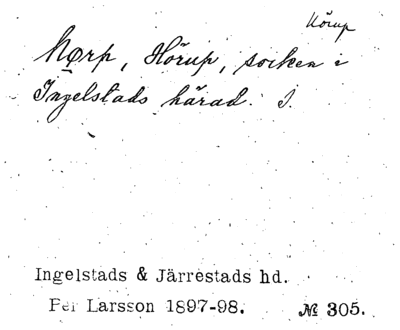 Hörup
Nørp, Hörup, socken i
Ingelstads härad. I.
Ingelstads & Järrestads hd.
Per Larsson 1897-98. № 305.